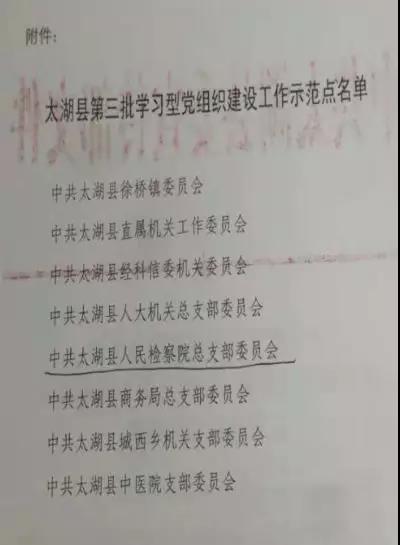 附件：
太湖县第三批学习型党组织建设工作示范点名单
中共太湖县徐桥镇委员会
中共太湖县直属机关工作委员会
中共太湖县经科信委机关委员会
中共太湖县人大机关总支部委员会
中共太湖县人民检察院总支部委员会
中共太湖县商务局总支部委员会
中共太湖县城西乡机关支部委员会
中共太湖县中医院支部委员会